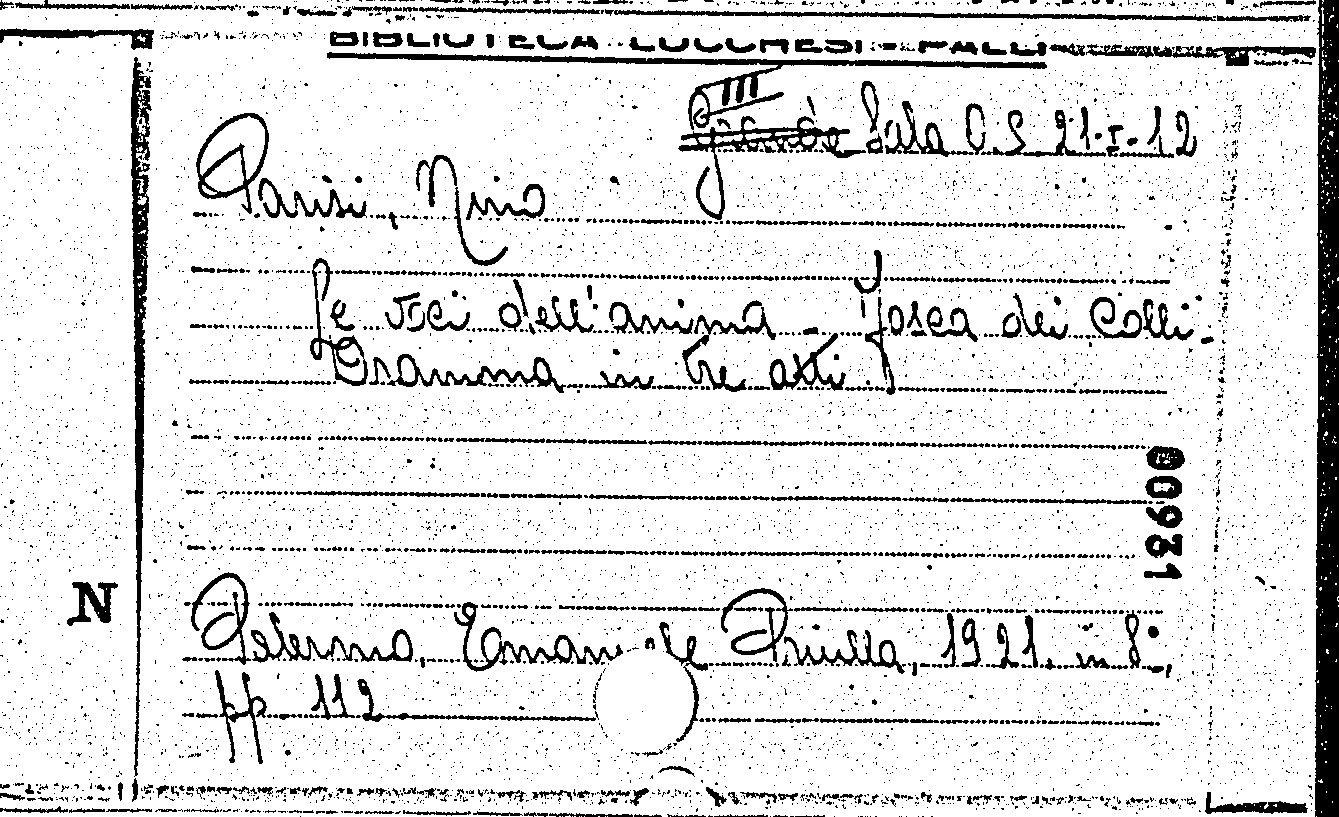 BIBLIOTECA LUCCHESI - PALLI
III
Grande Sala O.S 21-I-12
Parisi, Nino
Le voci dell'anima - Josca dei Colli.
Dramma in tre atti.
00931
N
Palermo, Emanuele Priulla, 1921. in 8°,
pp. 112